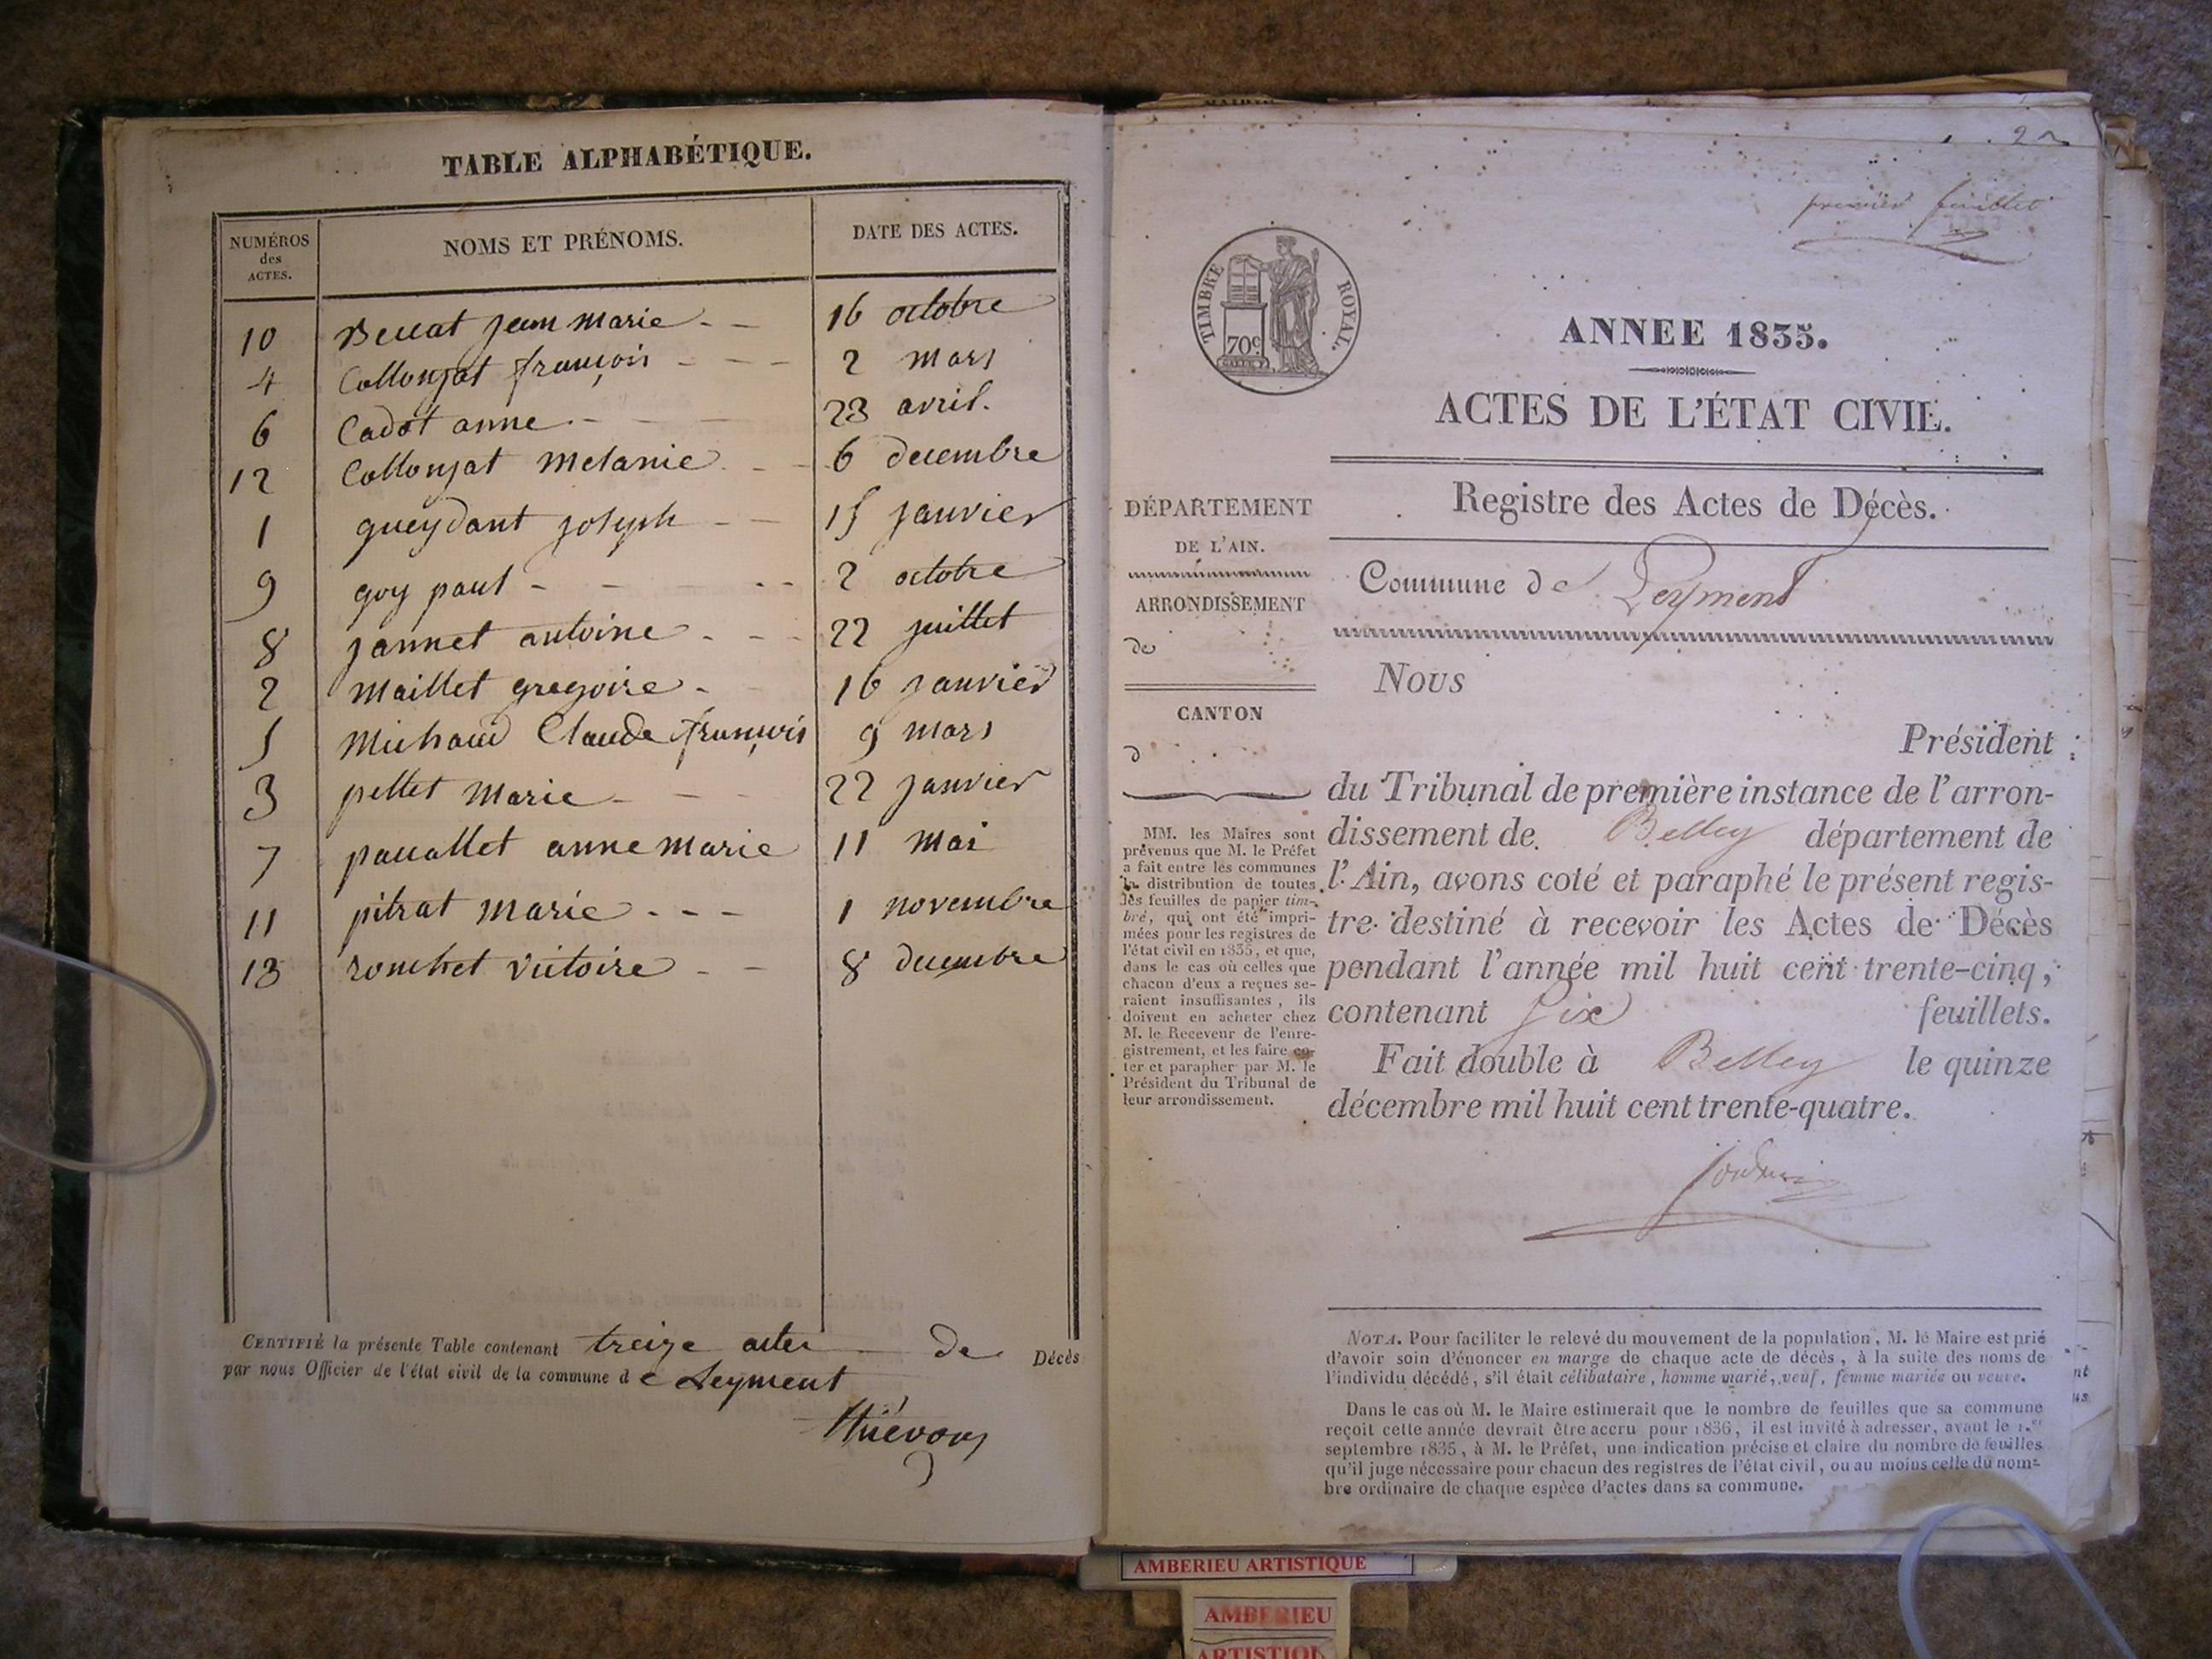 TABLE ALPHABÉTIQUE.
NUMÉROS
des
ACTES.
NOMS ET PRÉNOMS.
DATE DES ACTES.
10 Beccat jean marie 16 octobre
4 Collonjat françois 2 mars
6 Cadot anne 23 avril.
12 Collonjat melanie 6 decembre
1 gueydant joseph 15 janvier
9 goy paul 2 octobre
8 jannet antoine 22 juillet
2 maillet gregoire 16 janvier
5 Michaud Claude françois 9 mars
3 pellet marie 22 janvier
7 paccallet anne marie 11 mai
11 pitrat marie 1 novembre
13 ronchet victoire 8 decembre
CERTIFIÉ la présente Table contenant treize actes de Décès
par nous Officier de l'état civil de la commune de Leyment
premier feuillet
TIMBRE ROYAL.
70c
ANNEE 1835.
ACTES DE L'ÉTAT CIVIL.
Registre des Actes de Décès.
Commune de Leyment
DÉPARTEMENT
DE L'AIN.
ARRONDISSEMENT
de
CANTON
d
MM. les Maires sont
prévenus que M. le Préfet
a fait entre les communes
la distribution de toutes
les feuilles de papier tim-
bré, qui ont été impri-
mées pour les registres de
l'état civil en 1835, et que,
dans le cas où celles que
chacun d'eux a reçues se-
raient insuffisantes, ils
doivent en acheter chez
M. le Receveur de l'enre-
gistrement, et les faire co-
ter et parapher par M. le
Président du Tribunal de
leur arrondissement.
Nous
Président
du Tribunal de première instance de l'arron-
dissement de Belley département de
l'Ain, avons coté et paraphé le présent regis-
tre destiné à recevoir les Actes de Décès
pendant l'année mil huit cent trente-cinq,
contenant Six feuillets.
Fait double à Belley le quinze
décembre mil huit cent trente-quatre.
NOTA. Pour faciliter le relevé du mouvement de la population, M. le Maire est prié
d'avoir soin d'énoncer en marge de chaque acte de décès, à la suite des noms de
l'individu décédé, s'il était célibataire, homme marié, veuf, femme mariée ou veuve.
Dans le cas où M. le Maire estimerait que le nombre de feuilles que sa commune
reçoit cette année devrait être accru pour 1836, il est invité à adresser, avant le 1.er
septembre 1835, à M. le Préfet, une indication précise et claire du nombre de feuilles
qu'il juge nécessaire pour chacun des registres de l'état civil, ou au moins celle du nom-
bre ordinaire de chaque espèce d'actes dans sa commune.
AMBERIEU ARTISTIQUE
AMBERIEU
ARTISTIQU